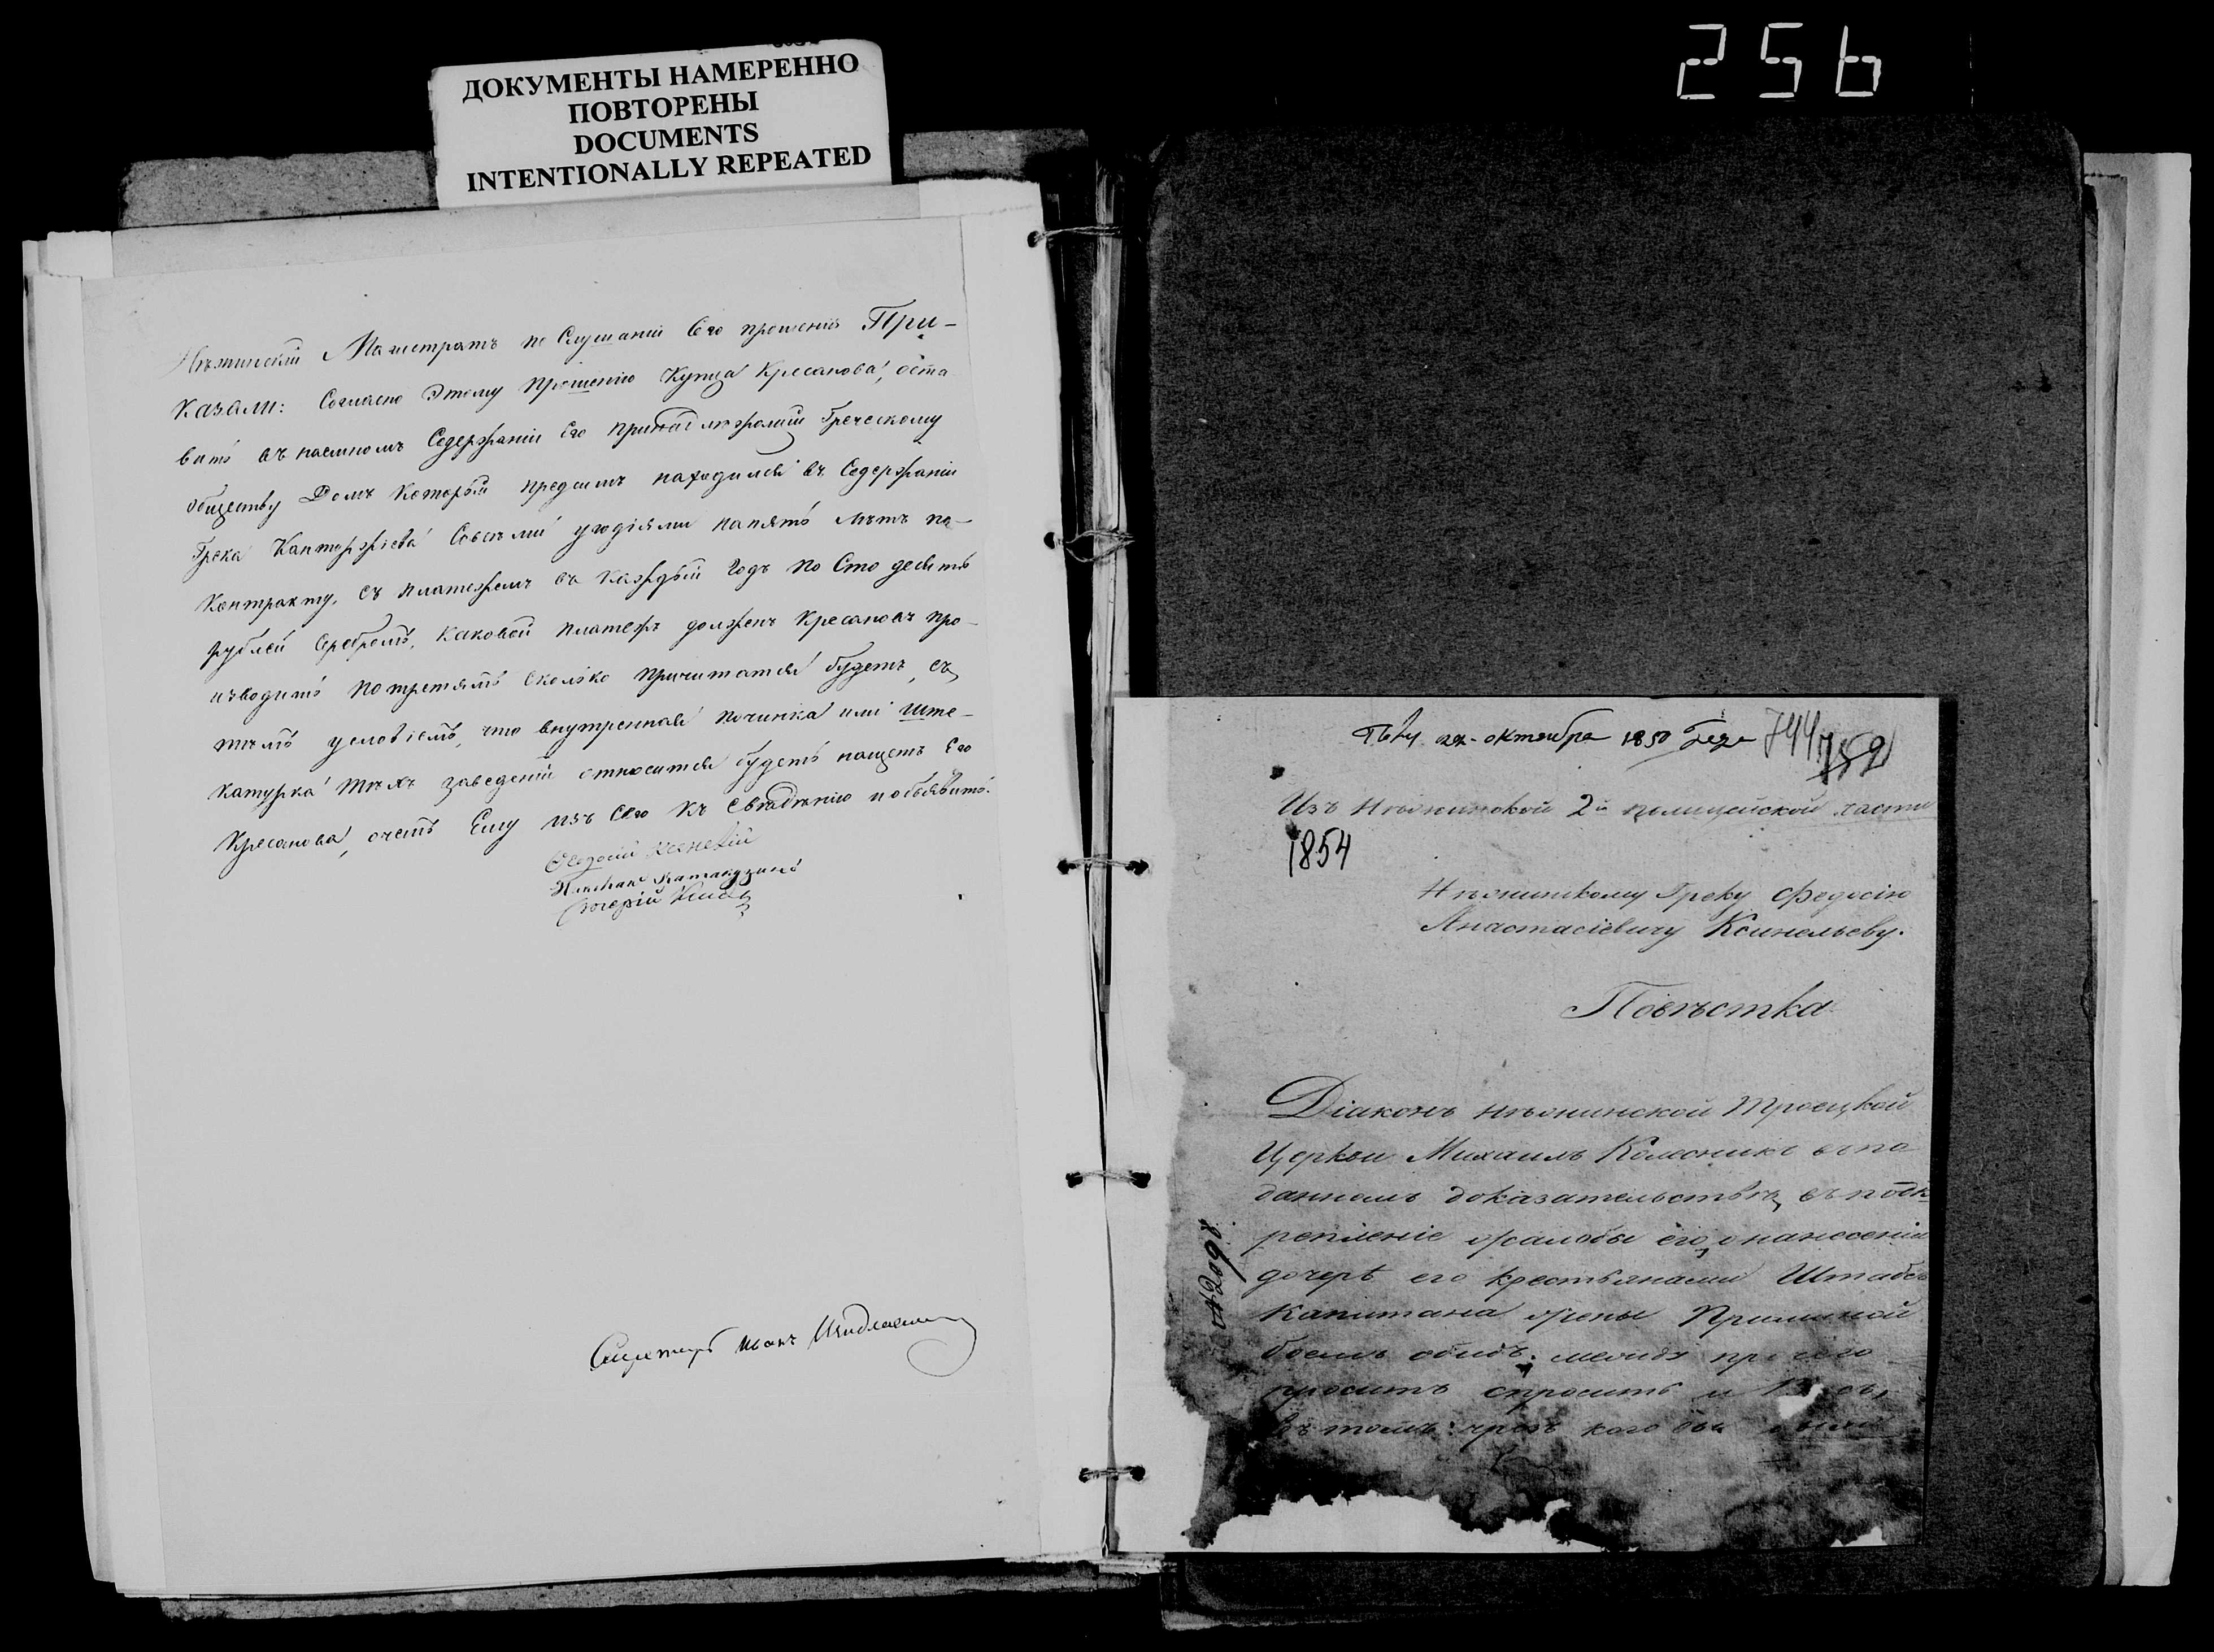 256
ДОКУМЕНТЫ НАМЕРЕННО
ПОВТОРЕНЫ
DOCUMENTS
INTENTIONALLY REPEATED
Нѣжинскій Магистратъ по Слушаніи Сего прошенія При-
казали: Согласно Этому прошенію Купца Кресанова, оста
вить въ наемномъ Содержаніи Его принадлежащій Греческому
обществу Домъ который предъ симъ находился въ Содержаніи
Грека Канторжіева Совсѣми угодіями на пять лѣтъ по
Контракту, съ платежемъ въ каждый годъ по Сто десять
рублей Серебромъ, каковой платежъ долженъ Кресановъ про-
изводить по третямъ сколько причитатся будетъ, съ
тѣмъ условіемъ, что внутренная починка или
тѣхъ заведеній относится будетъ на щетъ Его
Кресанова, о чемъ Ему изъ Сего къ Свѣдѣнію и объявить.
Секретарь
октября 1850 года 744 752
Изъ Нѣжинской 2й полицейской части
1854
Нѣжинскому Греку Федосію
Анастасіевичу Ксинельеву.
Повѣстка
Діаконъ нѣжинской Троецкой
Церкви Михаилъ Колесникъ въ по
данномъ доказательствѣ, въ подк
репленіе жалобы его, о нанесеніи
дочерѣ его крестьянами Штабсъ
Капитана жены
боемъ обидъ. между прочего
проситъ спросить и
въ томъ: чрезъ кого бы
№ 2098